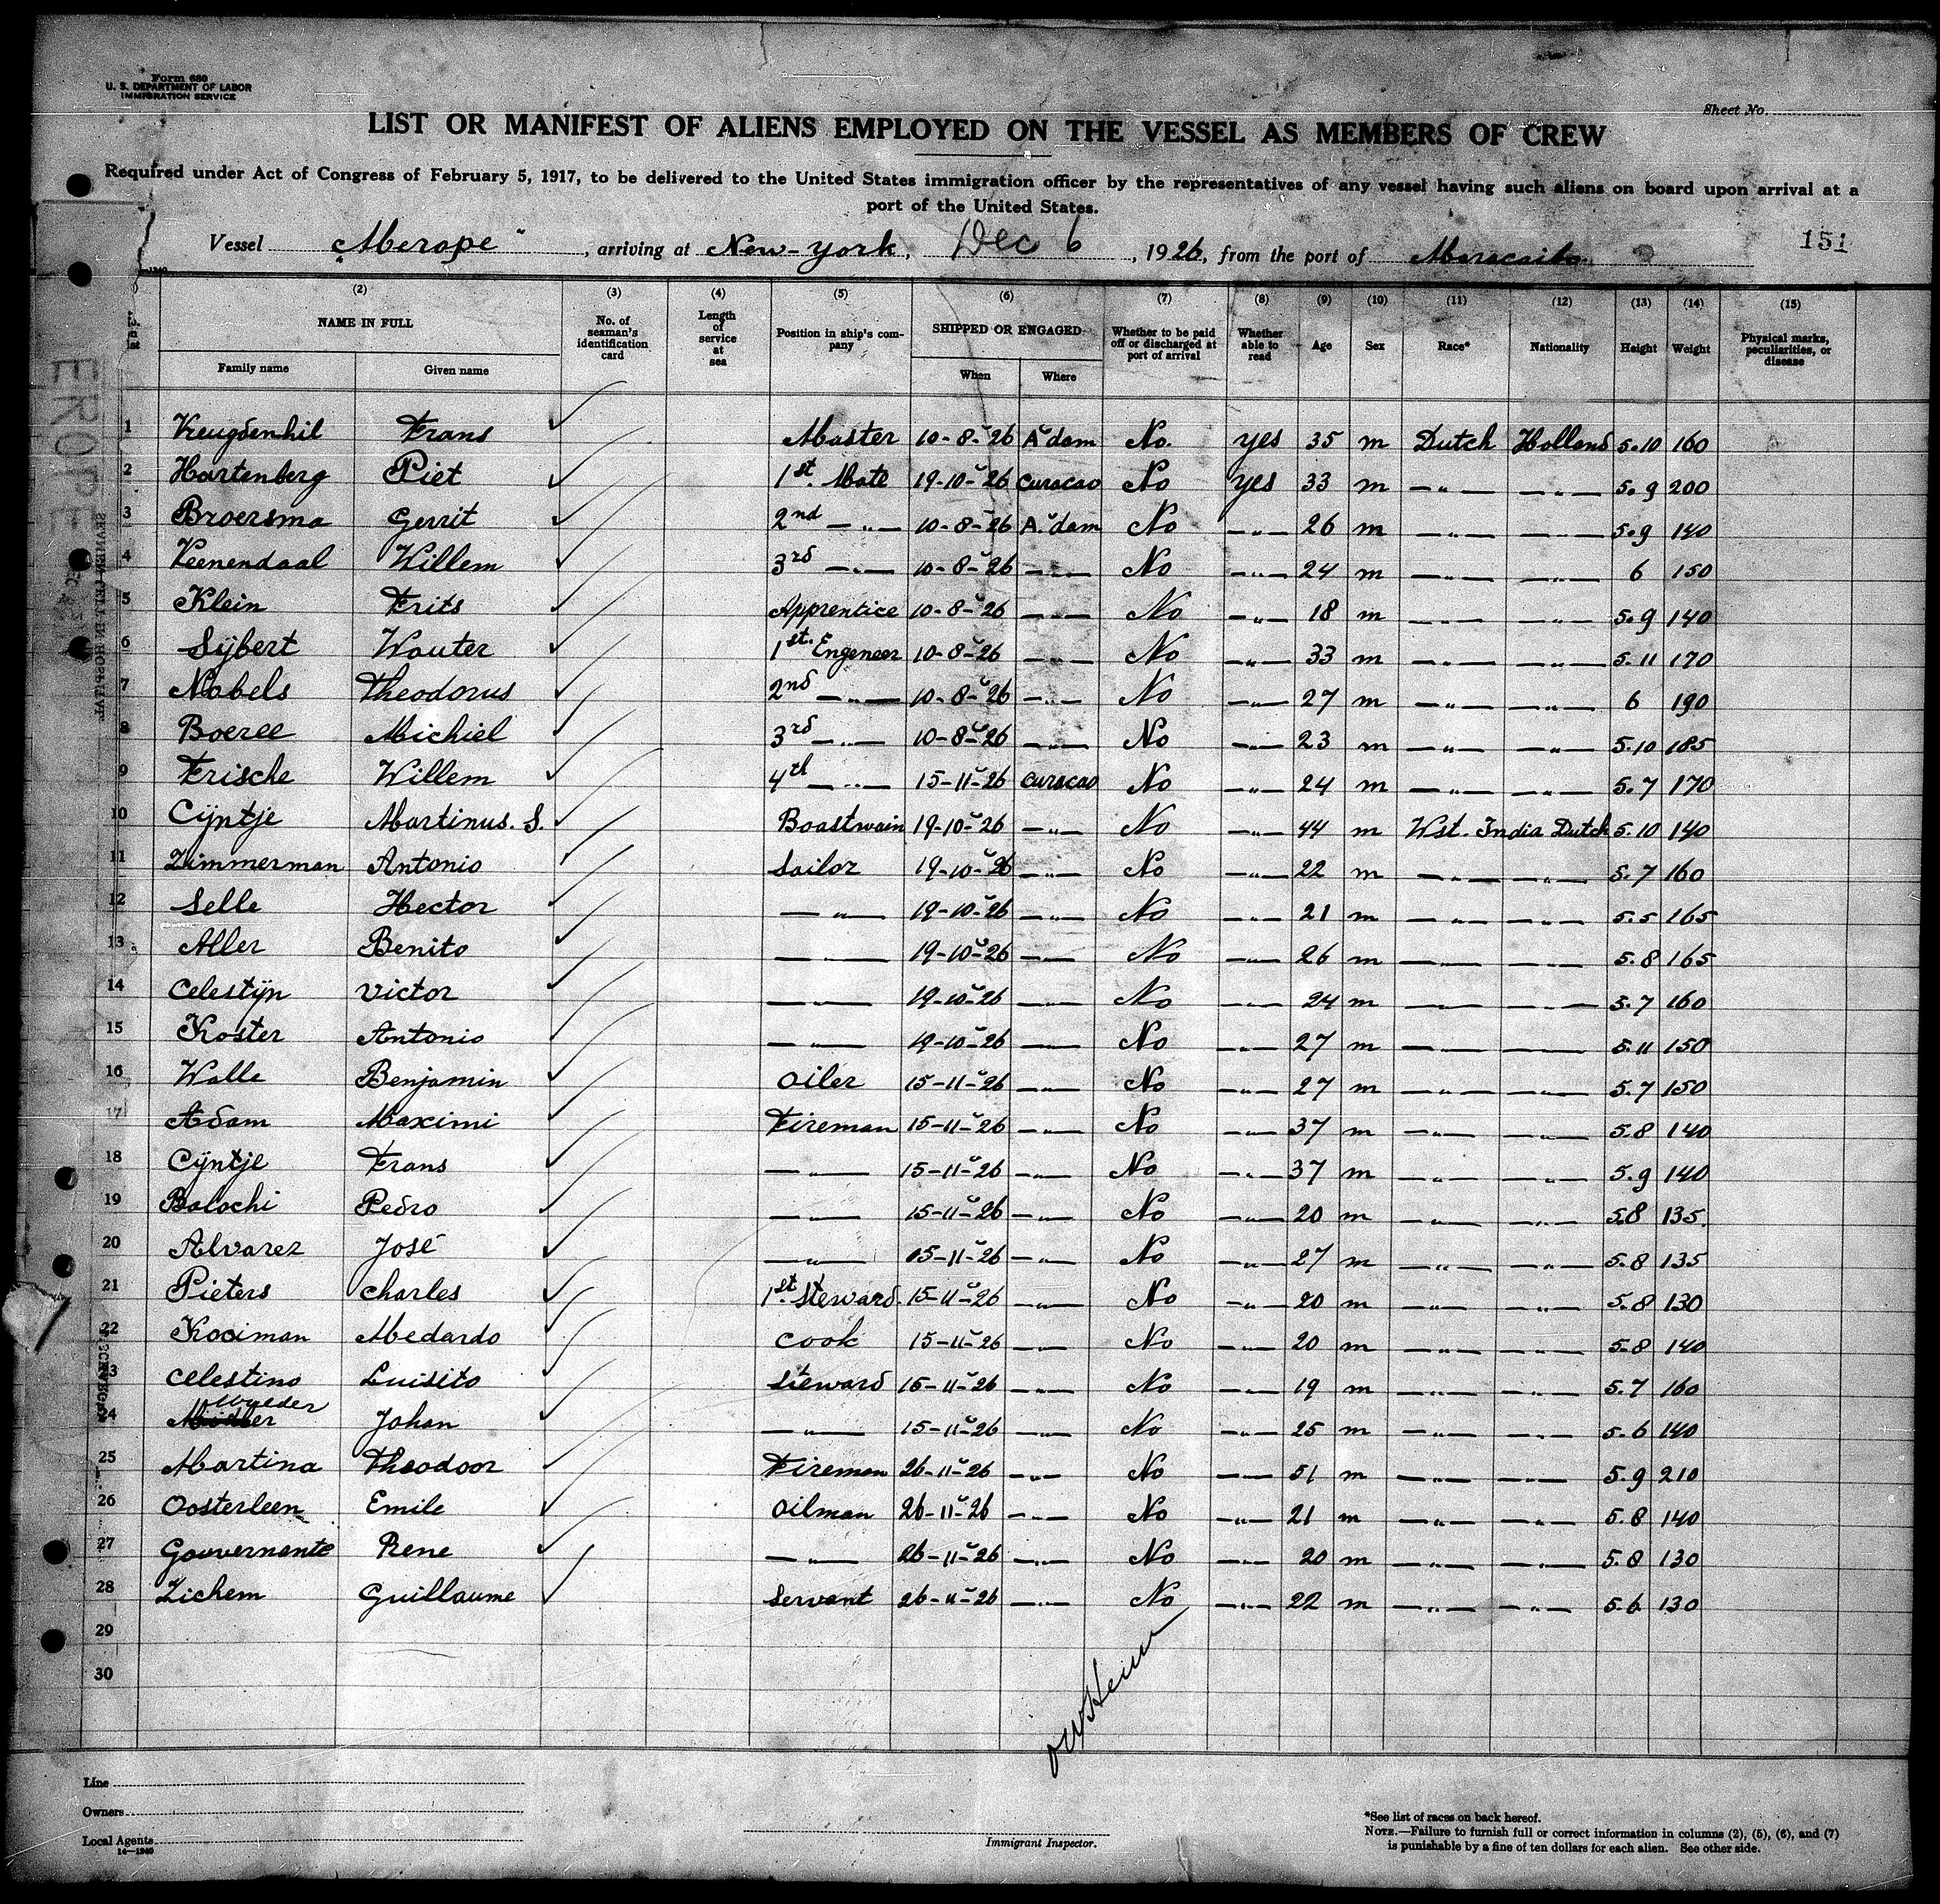 Form 680
U. S. DEPARTMENT OF LABOR
IMMIGRATION SERVICE
Sheet No.
LIST OR MANIFEST OF ALIENS EMPLOYED ON THE VESSEL AS MEMBERS OF CREW
Required under Act of Congress of February 5, 1917, to be delivered to the United States immigration officer by the representatives of any vessel having such aliens on board upon arrival at a
port of the United States.
Vessel „Merope" , arriving at New-York, Dec 6 , 1926, from the port of Maracaibo
151
(2) (3) (4) (5) (6) (7) (8) (9) (10) (11) (12) (13) (14) (15)
NAME IN FULL No. of seaman's identification card Length of service at sea Position in ship's company SHIPPED OR ENGAGED Whether to be paid off or discharged at port of arrival Whether able to read Age Sex Race* Nationality Height Weight Physical marks, peculiarities, or disease
Family name Given name When Where
1 Vreugdenhil Frans Master 10-8-26 A'dam No. yes 35 m Dutch Holland 5.10 160
2 Hartenberg Piet 1st. Mate 19-10-26 Curacao No yes 33 m —„— —„— 5.9 200
3 Broersma Gerrit 2nd —„— 10-8-26 A'dam No —„— 26 m —„— —„— 5.9 140
4 Veenendaal Willem 3rd —„— 10-8-26 —„— No —„— 24 m —„— —„— 6 150
5 Klein Frits Apprentice 10-8-26 —„— No —„— 18 m —„— —„— 5.9 140
6 Sijbert Wouter 1st. Engeneer 10-8-26 —„— No —„— 33 m —„— —„— 5.11 170
7 Nobels Theodorus 2nd —„— 10-8-26 —„— No —„— 27 m —„— —„— 6 190
8 Boeree Michiel 3rd —„— 10-8-26 —„— No —„— 23 m —„— —„— 5.10 185
9 Frische Willem 4th —„— 15-11-26 Curacao No —„— 24 m —„— —„— 5.7 170
10 Cijntje Martinus. S. Boastwain 19-10-26 —„— No —„— 44 m Wst. India Dutch 5.10 140
11 Zimmerman Antonio Sailor 19-10-26 —„— No —„— 22 m —„— —„— 5.7 160
12 Selle Hector —„— 19-10-26 —„— No —„— 21 m —„— —„— 5.5 165
13 Aller Benito —„— 19-10-26 —„— No —„— 26 m —„— —„— 5.8 165
14 Celestijn Victor —„— 19-10-26 —„— No —„— 24 m —„— —„— 5.7 160
15 Koster Antonio —„— 19-10-26 —„— No —„— 27 m —„— —„— 5.11 150
16 Walle Benjamin Oiler 15-11-26 —„— No —„— 27 m —„— —„— 5.7 150
17 Adam Maximi Fireman 15-11-26 —„— No —„— 37 m —„— —„— 5.8 140
18 Cijntje Frans —„— 15-11-26 —„— No —„— 37 m —„— —„— 5.9 140
19 Balochi Pedro —„— 15-11-26 —„— No —„— 20 m —„— —„— 5.8 135.
20 Alvarez José —„— 15-11-26 —„— No —„— 27 m —„— —„— 5.8 135
21 Pieters Charles 1st. Steward. 15-11-26 —„— No —„— 20 m —„— —„— 5.8 130
22 Kooiman Medardo Cook 15-11-26 —„— No —„— 20 m —„— —„— 5.8 140
23 Celestino Luisito Steward 15-11-26 —„— No —„— 19 m —„— —„— 5.7 160
24 Johan —„— 15-11-26 —„— No —„— 25 m —„— —„— 5.6 140
25 Martina Theodoor Fireman 26-11-26 —„— No —„— 51 m —„— —„— 5.9 210
26 Oosterleen Emile Oilman 26-11-26 —„— No —„— 21 m —„— —„— 5.8 140
27 Gouvernante Rene —„— 26-11-26 —„— No —„— 20 m —„— —„— 5.8 130
28 Zichem Guillaume Servant 26-11-26 —„— No —„— 22 m —„— —„— 5.6 130
29
30
Line
Owners
Local Agents
14—1240
Immigrant Inspector.
*See list of races on back hereof.
NOTE.—Failure to furnish full or correct information in columns (2), (5), (6), and (7)
is punishable by a fine of ten dollars for each alien. See other side.